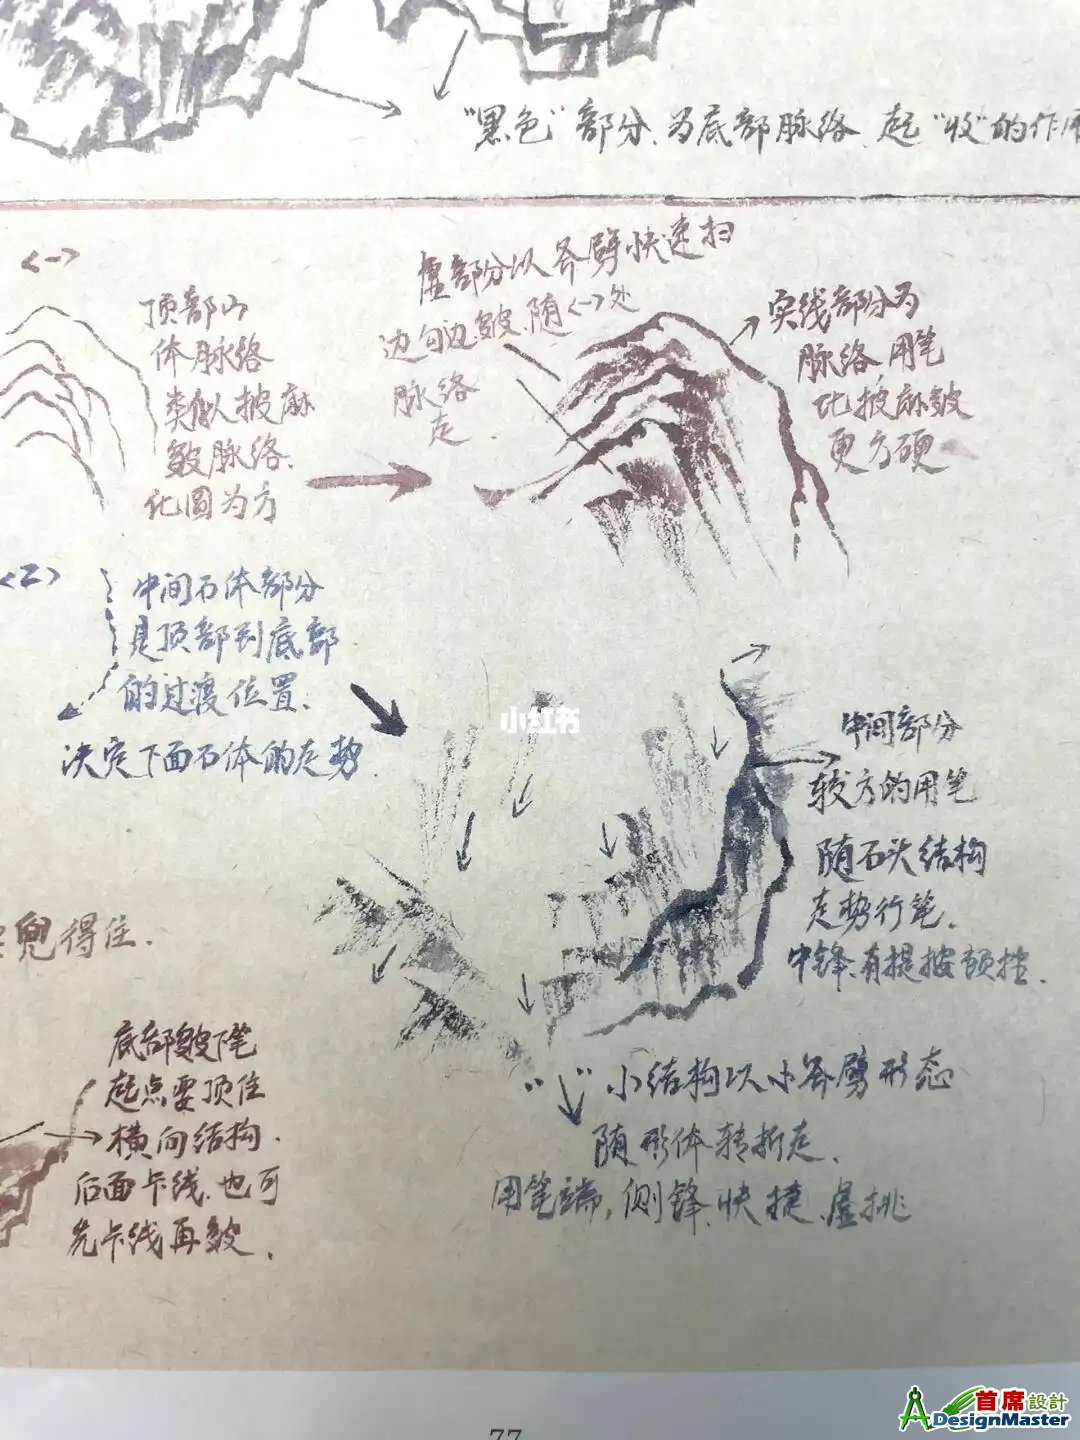 "黑色"部分、为底部脉络、起"收"的作用
<一>
顶部山
体脉络
类似披麻
皴脉络、
化圆为方
虚部分以斧劈快速扫
边勾边皴、随<一>处
脉络
走.
实线部分为
脉络、用笔
比披麻皴
更方硬
<二>
中间石体部分
是顶部到底部
的过渡位置、
决定下面石体的走势.
小红书
中间部分
较方的用笔
随石头结构
走势行笔.
中锋、有提按顿挫.
兜得住.
底部皴下笔
起点要顶住
横向结构.
后面卡线、也可
先卡线再皴、
" ↓ "小结构以小斧劈形态
随形体转折走、
用笔端,侧锋、快捷、虚挑
77
首席設計
ADesignMaster